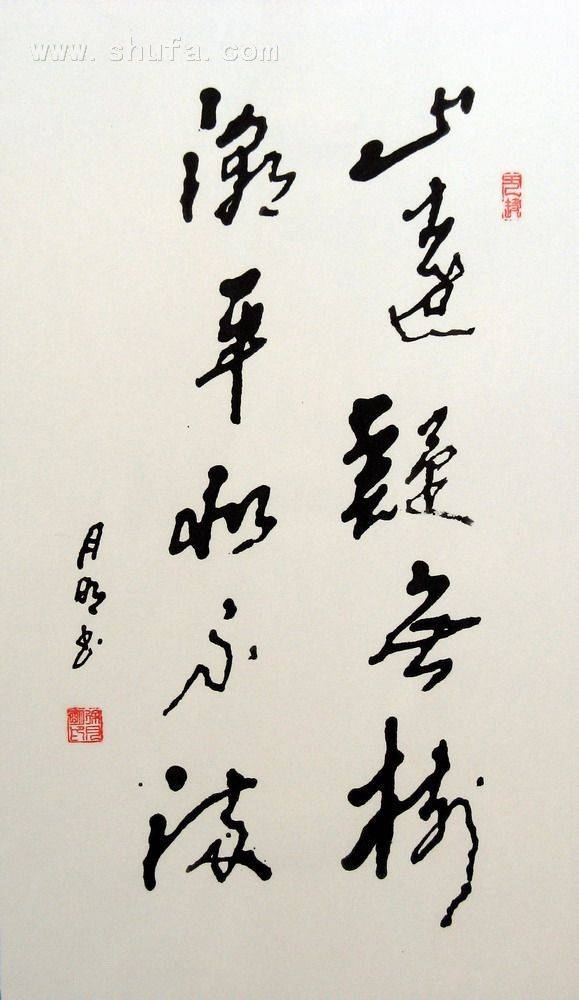 www.shufa.com
山遠疑無樹
潮平似不流
月明书